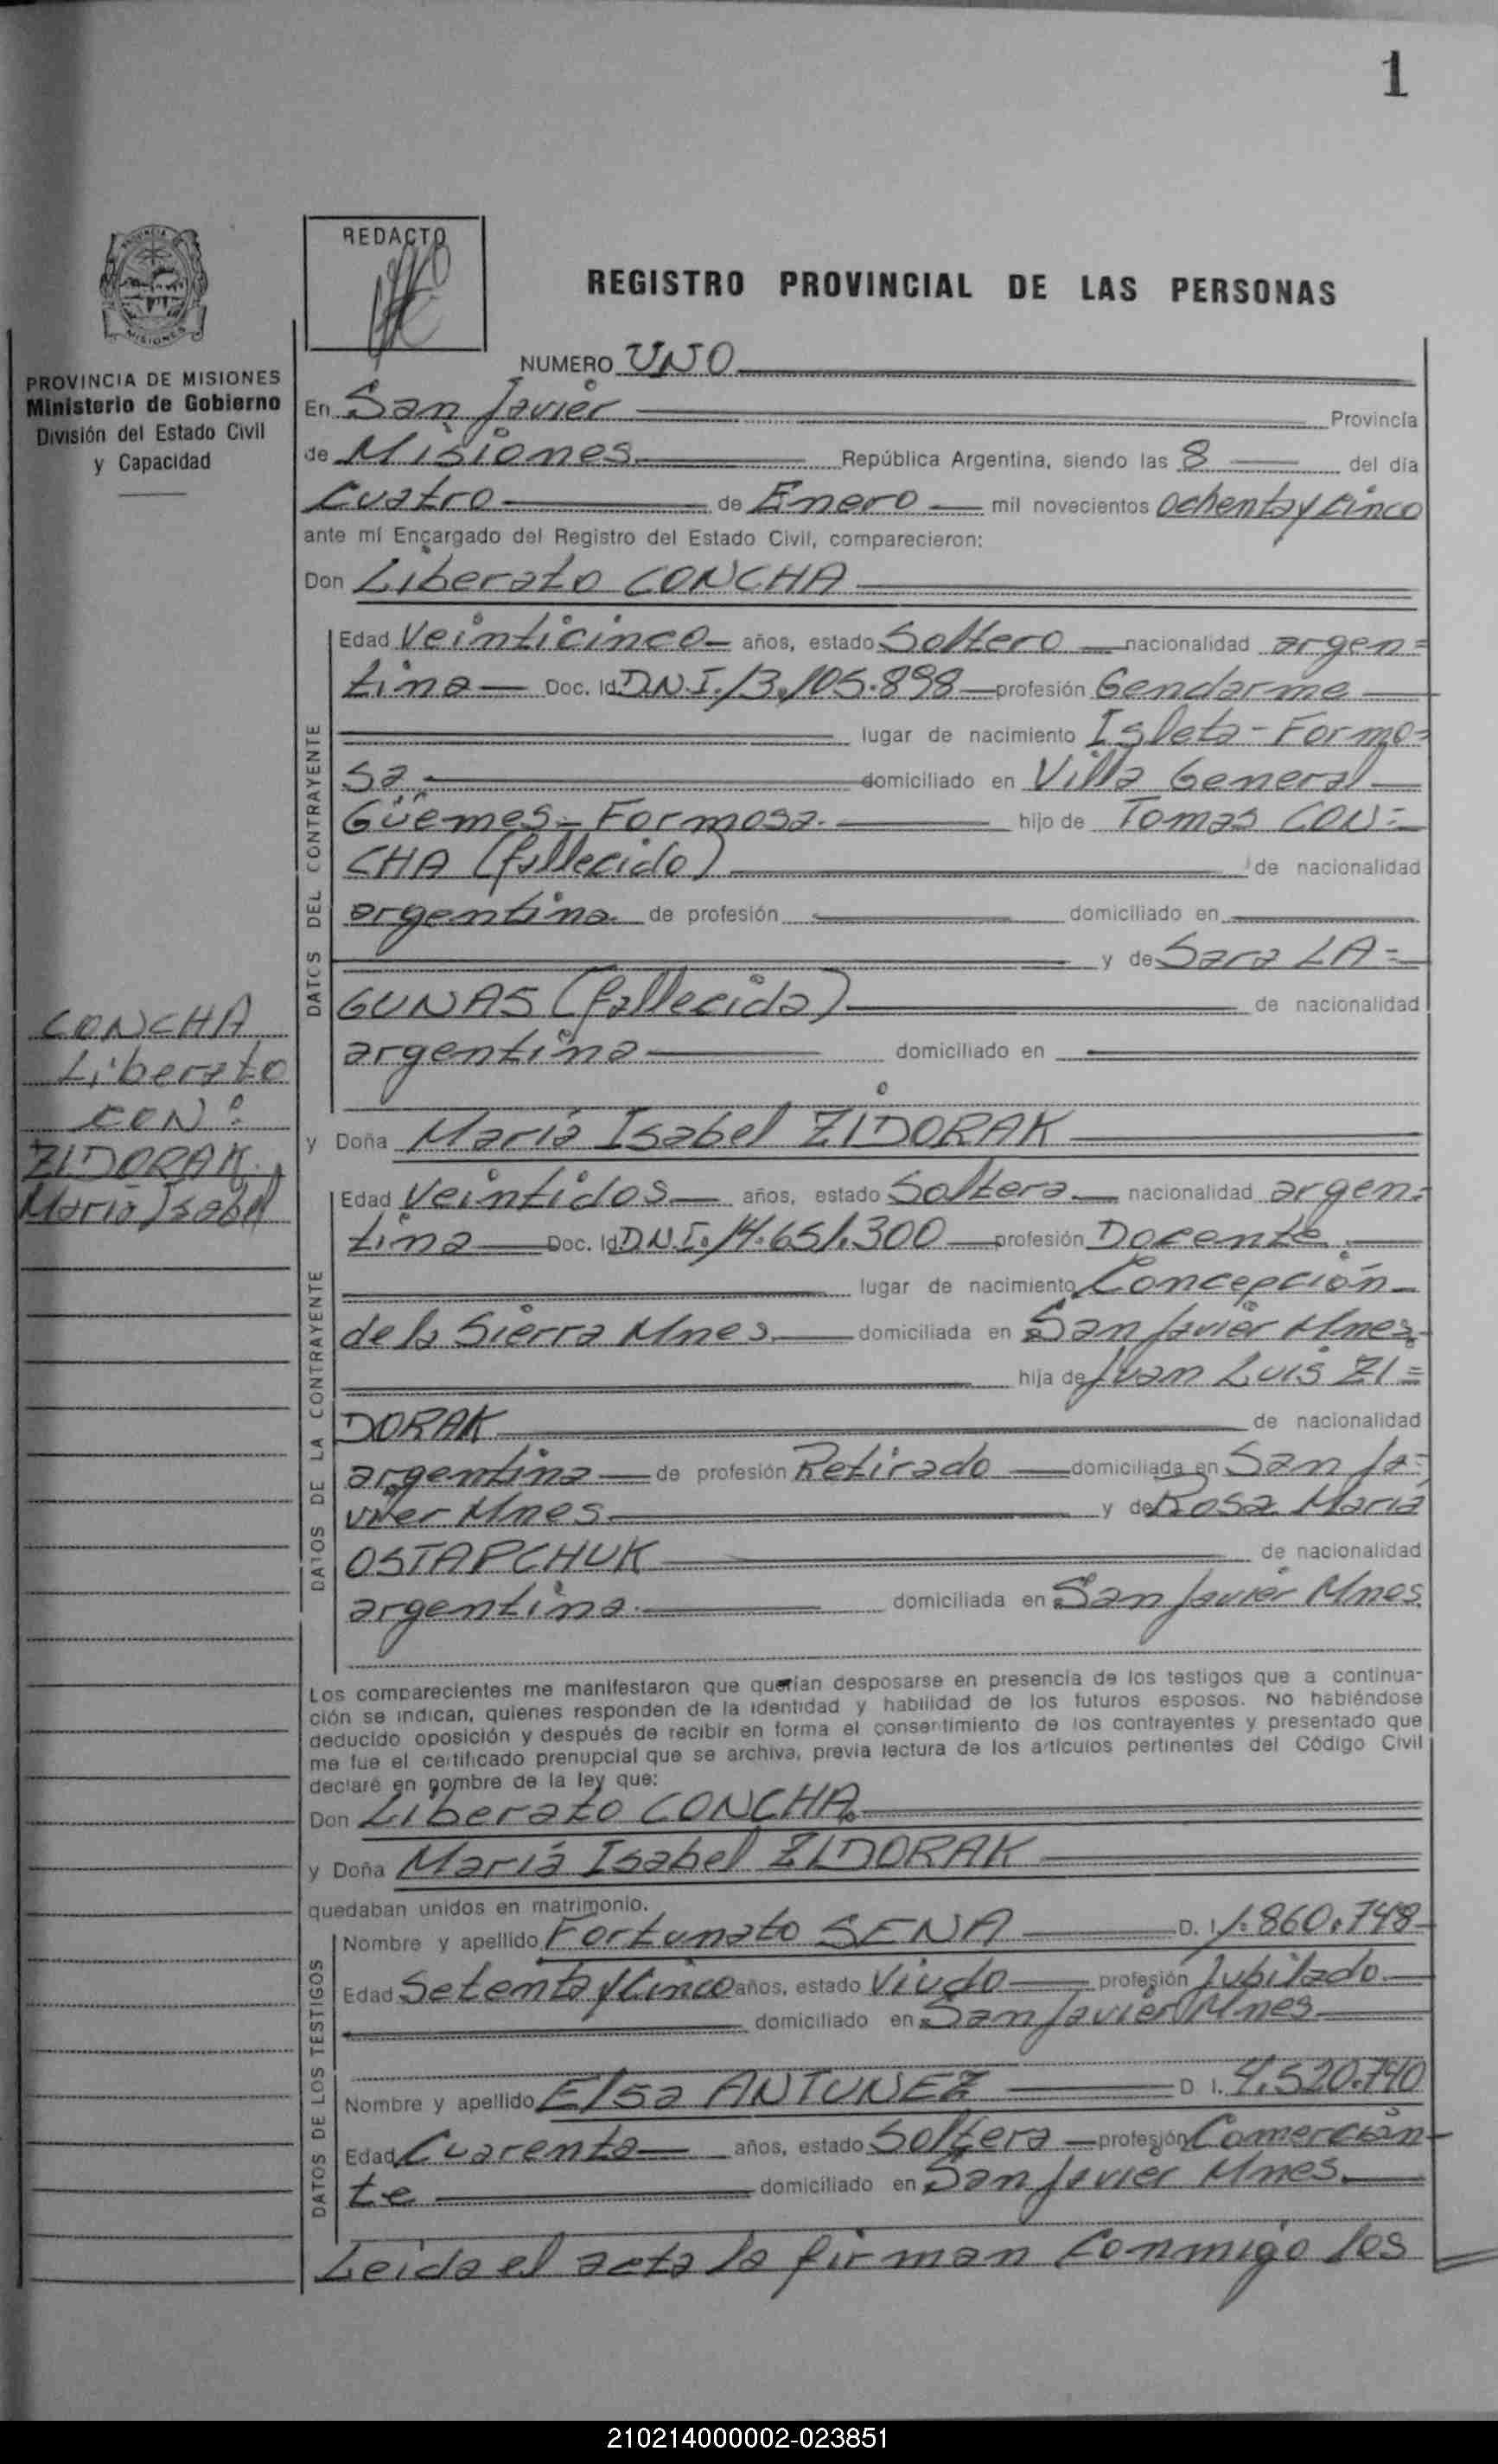 1
PROVINCIA DE MISIONES
Ministerio de Gobierno
División del Estado Civil
y Capacidad
REDACTO
REGISTRO PROVINCIAL DE LAS PERSONAS
NUMERO UNO
En San Javier Provincia
de Misiones República Argentina, siendo las 8 del día
Cuatro de Enero mil novecientos ochenta y cinco
ante mí Encargado del Registro del Estado Civil, comparecieron:
Don Liberato CONCHA
DATOS DEL CONTRAYENTE
Edad Veinticinco años, estado Soltero nacionalidad argen=
tina Doc. Id D.N.I. 13.105.898 profesión Gendarme
lugar de nacimiento Isleta - Formo=
sa domiciliado en Villa General
Güemes - Formosa. hijo de Tomas CON=
CHA (fallecido) de nacionalidad
argentina de profesión domiciliado en
y de Sara LA=
GUNAS (fallecida) de nacionalidad
argentina domiciliado en
CONCHA
Liberato
CON:
ZIDORAK
Maria Isabel
y Doña María Isabel ZIDORAK
DATOS DE LA CONTRAYENTE
Edad Veintidos años, estado Soltera nacionalidad argen=
tina Doc. Id D.N.I. 14.651.300 profesión Docente
lugar de nacimiento Concepción
de la Sierra Mnes domiciliada en San Javier Mnes.
hija de Juan Luis ZI=
DORAK de nacionalidad
argentina de profesión Retirado domiciliada en San Ja=
vier Mnes y de Rosa Maria
OSTAPCHUK de nacionalidad
argentina domiciliada en San Javier Mnes
Los comparecientes me manifestaron que querían desposarse en presencia de los testigos que a continua-
ción se indican, quienes responden de la identidad y habilidad de los futuros esposos. No habiéndose
deducido oposición y después de recibir en forma el consentimiento de los contrayentes y presentado que
me fue el certificado prenupcial que se archiva, previa lectura de los artículos pertinentes del Código Civil
declaré en nombre de la ley que:
Don Liberato CONCHA
y Doña María Isabel ZIDORAK
quedaban unidos en matrimonio.
DATOS DE LOS TESTIGOS
Nombre y apellido Fortunato SENA D. I. 1.860.748
Edad Setenta y Cinco años, estado Viudo profesión Jubilado
domiciliado en San Javier Mnes
Nombre y apellido Elsa ANTUNEZ D. I. 4.520.740
Edad Cuarenta años, estado Soltera profesión Comercian
te domiciliado en San Javier Mnes.
Leida el acta la firman conmigo los
210214000002-023851